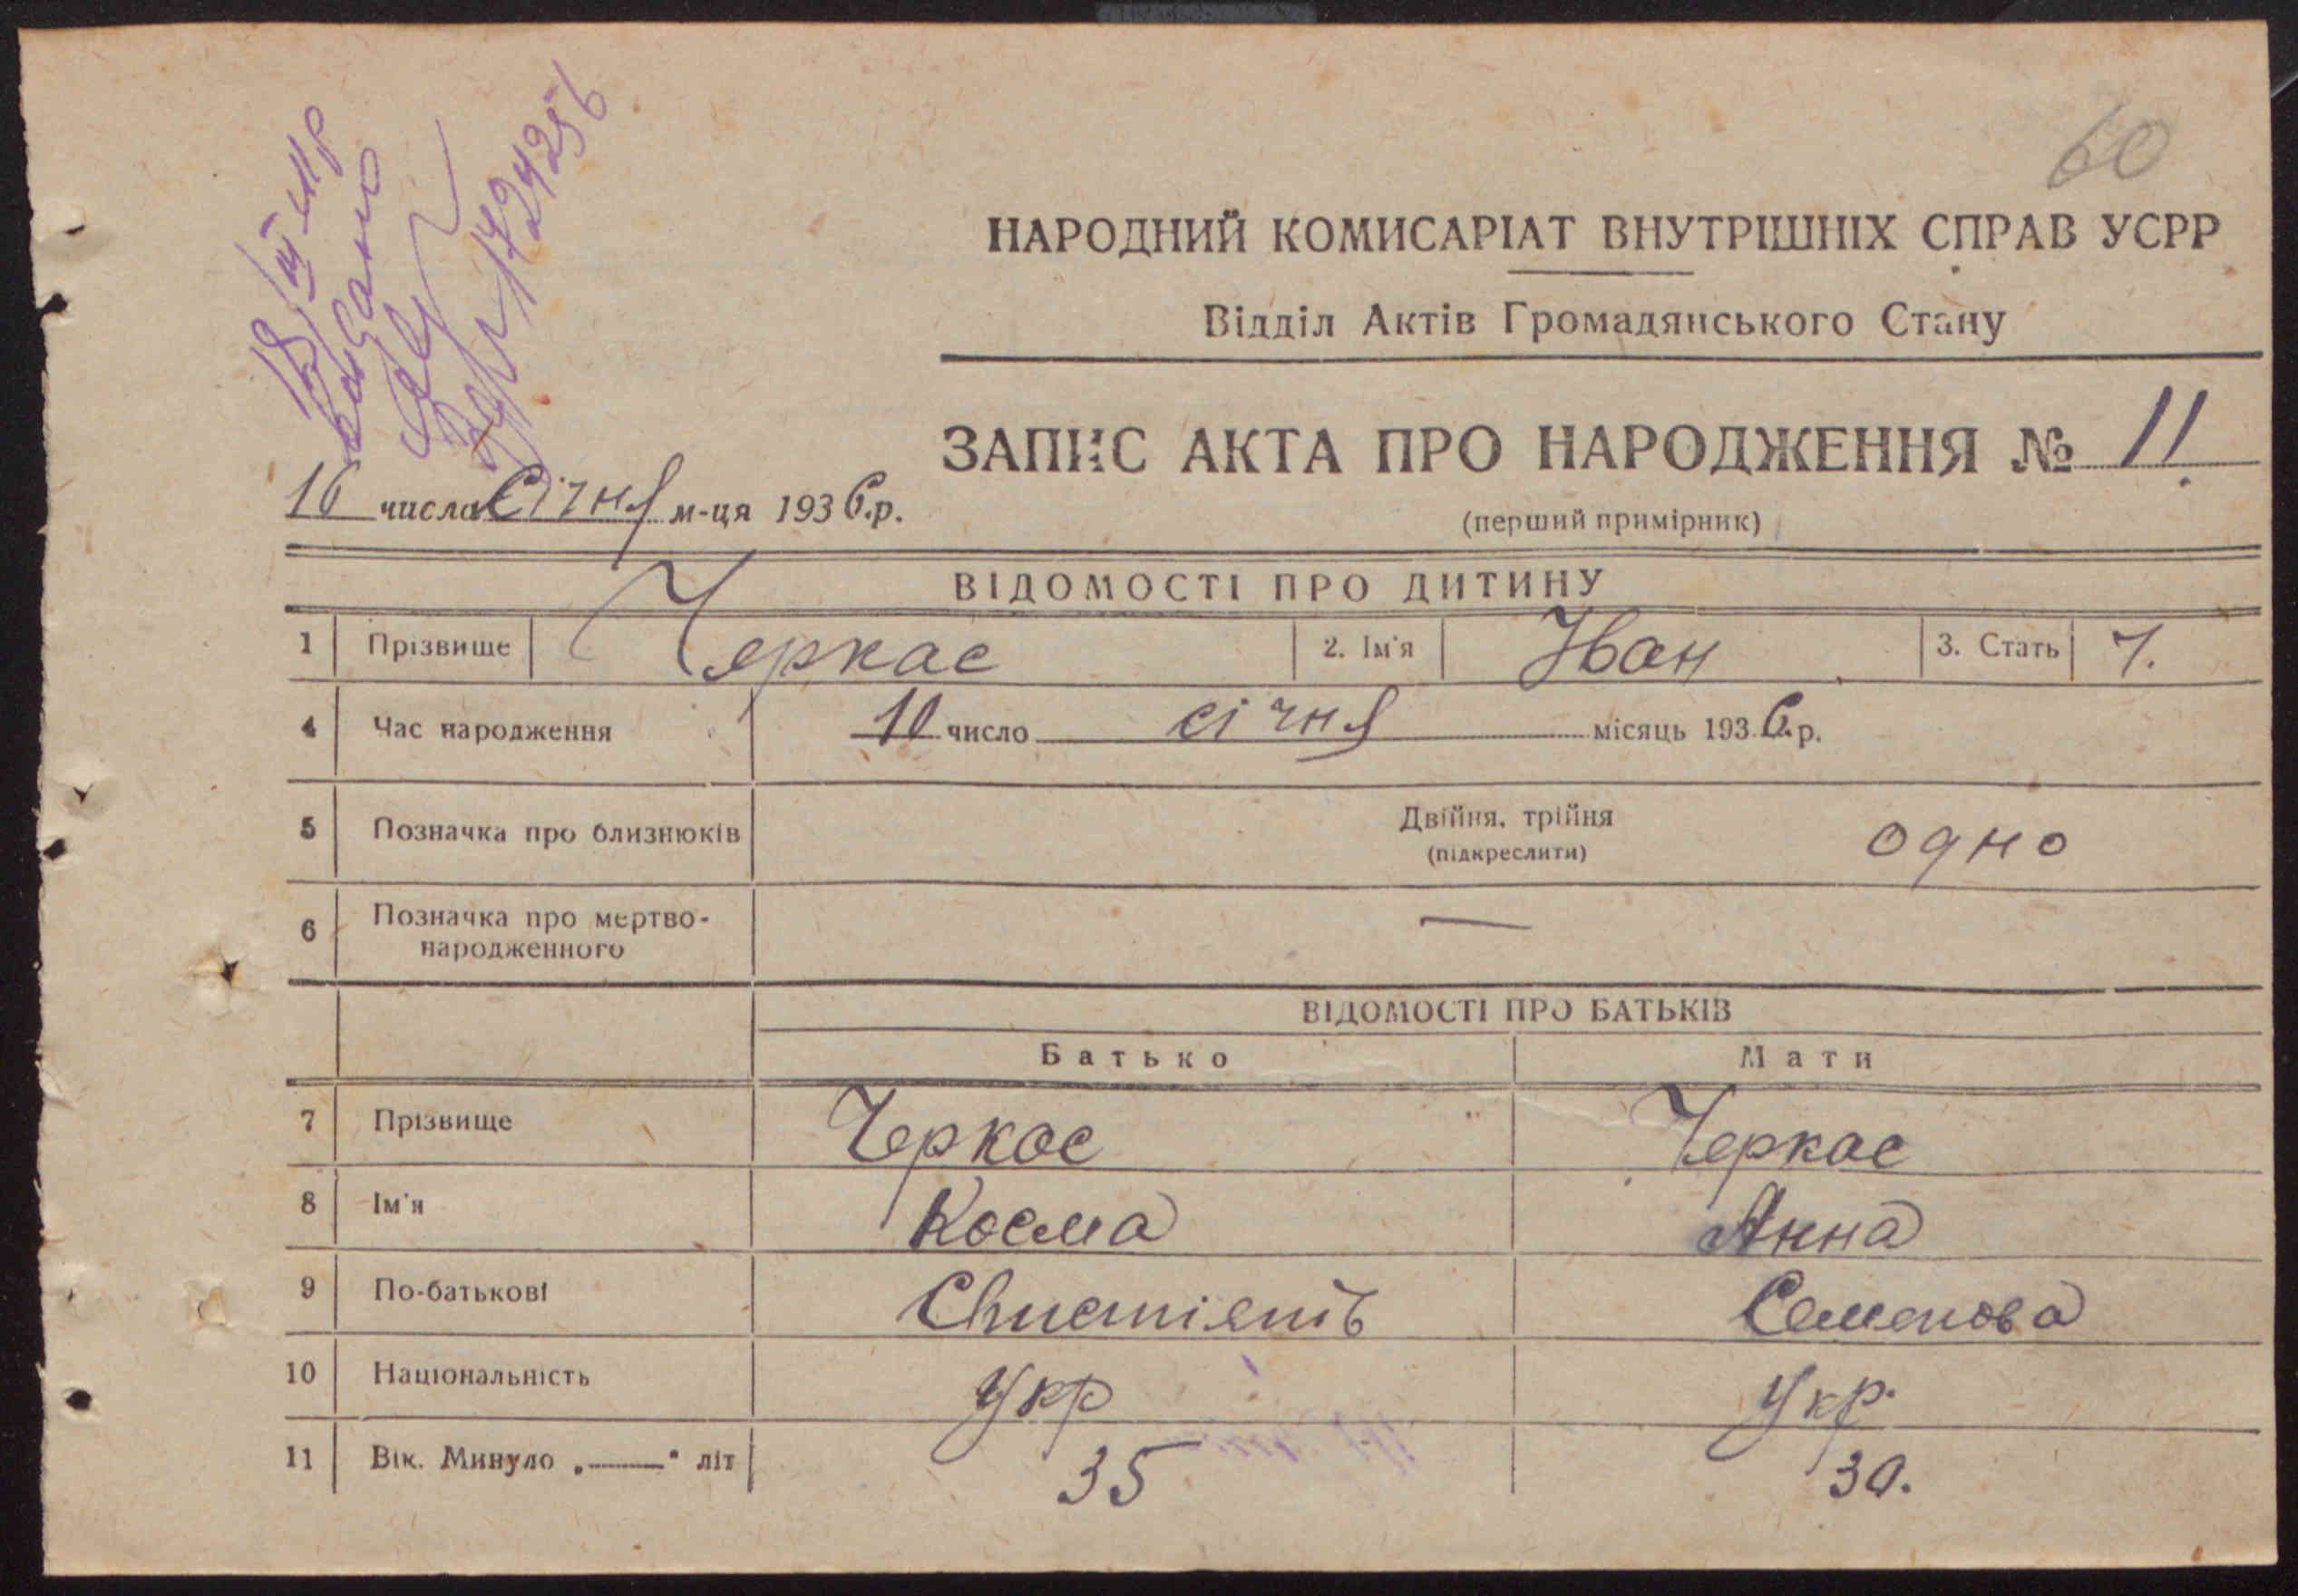 60
НАРОДНИЙ КОМИСАРІАТ ВНУТРІШНІХ СПРАВ УСРР
Відділ Актів Громадянського Стану
ЗАПИС АКТА ПРО НАРОДЖЕННЯ № 11
16 числа січня м-ця 1936.р.
(перший примірник)
ВІДОМОСТІ ПРО ДИТИНУ
1 Прізвище Черкас 2. Ім'я Іван 3. Стать Ч.
4 Час народження 10 число січня місяць 1936.р.
5 Позначка про близнюків Двійня, трійня
(підкреслити) одно
6 Позначка про мертво-
народженного —
ВІДОМОСТІ ПРО БАТЬКІВ
Батько Мати
7 Прізвище Черкас Черкас
8 Ім'я Косма Анна
9 По-батькові Семенова
10 Національність Укр Укр.
11 Вік. Минуло „——" літ 35 30.